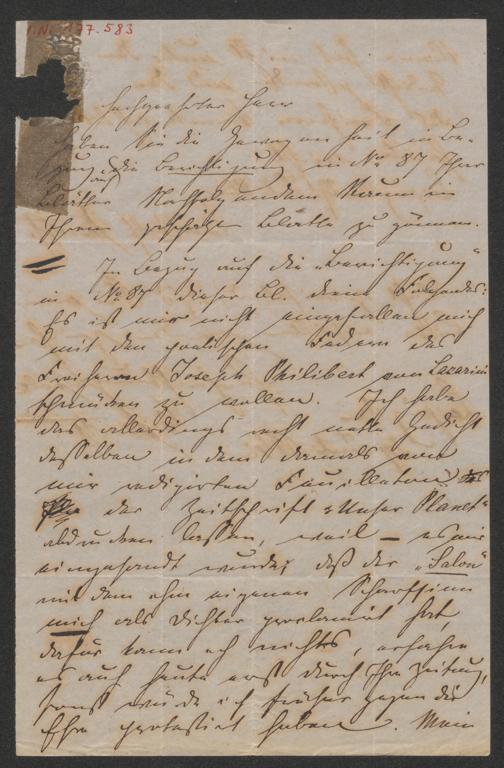 I.N. 177.583
Hochgeehrter Herr
Haben Sie die Gewogenheit in Be-
zug auf die Berichtigung in No 87 Ihrer
Blätter Nachfolgendem Raum in
Ihrem geschätzten Blatte zu gönnen.
In Bezug auf die „Berichtigung"
in No 87 dieser Bl. diene Folgendes:
Es ist mir nicht eingefallen mich
mit den poetischen Federn des
Freiherrn Joseph Philibert von Lazarini
schmücken zu wollen. Ich habe
das allerdings recht nette Gedicht
desselben in dem damals von
mir redigirten Feuilleton
der Zeitschrift „Unser Planet"
abdrucken lassen, weil – es mir
eingesandt wurde; daß der „Salon"
mit dem ihm eigenen Scharfsinn
mich als Dichter proclamirt hat,
dafür kann ich nichts, erfahre
es auch heute erst durch Ihre Zeitung,
sonst würde ich früher gegen die
Ehre protestirt haben. Mein